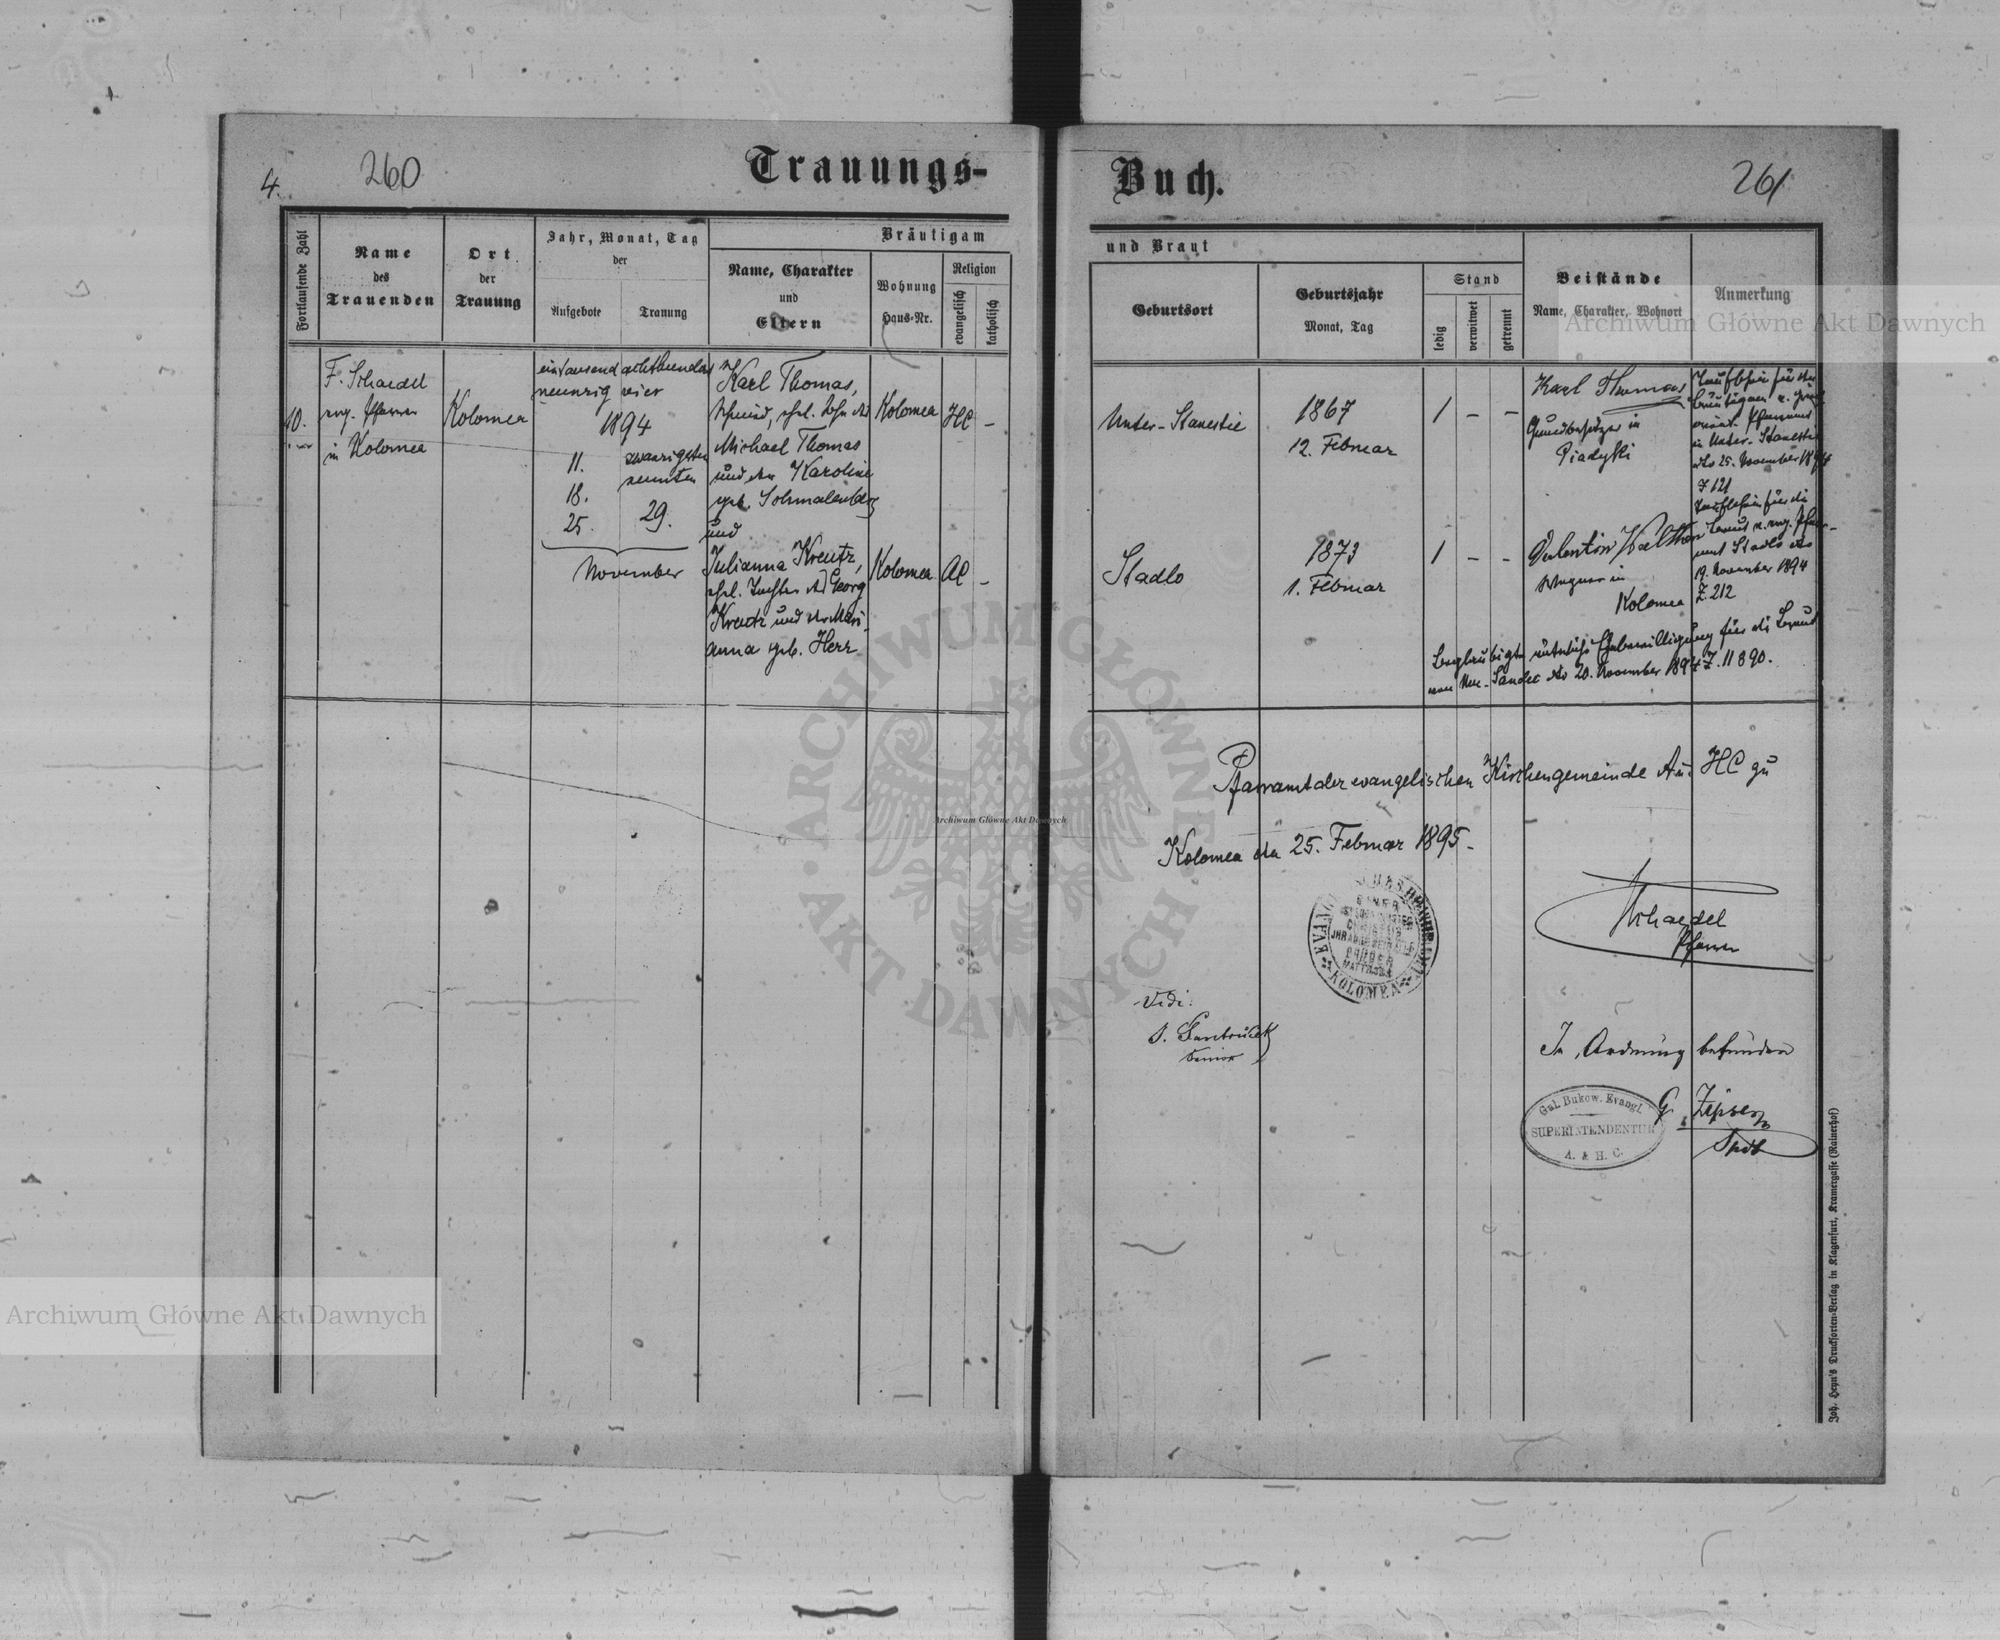 4.
260
Trauungs-
Buch.
261
Fortlaufende Zahl
Name
des
Trauenden
Ort
der
Trauung
Jahr, Monat, Tag
der
Aufgebote
Trauung
Bräutigam
Name, Charakter
und
Eltern
Wohnung
Haus-Nr.
Religion
evangelisch
katholisch
und Braut
Geburtsort
Geburtsjahr
Monat, Tag
Stand
ledig
verwitwet
getrennt
Beistände
Name, Charakter, Wohnort
Anmerkung
10.
F. Schaedel
evg. Pfarrer
in Kolomea
Kolomea
eintausend achthundert
neunzig vier
1894
11.
18.
25.
zwanzigsten
neunten
29.
November
Karl Thomas,
Schmied, ehel. Sohn des
Michael Thomas
und der Karoline
geb. Schmalenberg
und
Julianna Kreutz,
ehel. Tochter des Georg
Kreutz und der Mari-
anna geb. Herz
Kolomea
HC
-
Kolomea
AC
-
Unter-Stanestie
1867
12. Februar
1
-
-
Stadlo
1873
1. Februar
1
-
-
Karl Thomas
Grundbesitzer in
Piadyki
Valentin Walther
Wagner in
Kolomea
Taufschein für den
Bräutigam v.
Pfarramt
in Unter-Stanestie
dto 25. November 1894
Z 121
Taufschein für die
Braut v. evg. Pfarr-
amt Stadlo dto
19. November 1894
Z. 212
Beglaubigte väterliche Ehebewilligung für die Braut
von Neu-Sandec dto 20. November 1894 Z. 11890.
Pfarramt der evangelischen Kirchengemeinde A u. HC zu
Kolomea den 25. Februar 1895.
Schaedel
Pfarrer
KOLOMEA
Vidi:
Senior
In Ordnung befunden
G. Zipser
Spdt
Gal. Bukow. Evangl.
SUPERINTENDENTUR
A. & H. C.
Joh. Heyn's Drucksorten-Verlag in Klagenfurt, Kramergasse (Rainerhof)
Archiwum Główne Akt Dawnych
Archiwum Główne Akt Dawnych
Archiwum Główne Akt Dawnych
ARCHIWUM GŁÓWNE AKT DAWNYCH